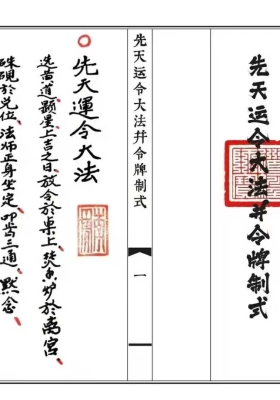 先天运令大法并令牌制式
先天运令大法并令牌制式
一
先天運令大法
选黄道题墨上吉之日放令於桌上焚香炉於离宫
硃砚於兑位法师正身坐定叩齿三通默念